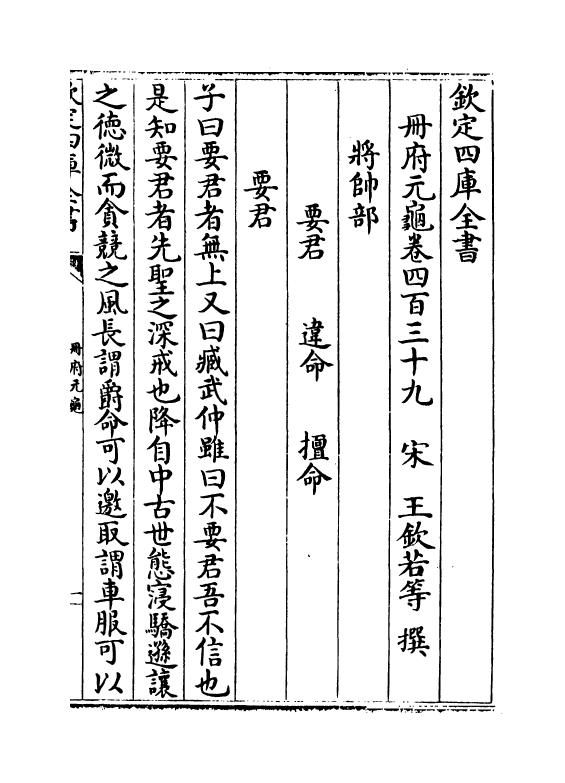 欽定四庫全書
冊府元龜卷四百三十九 宋 王欽若等 撰
將帥部
要君 違命 擅命
要君
子曰要君者無上又曰臧武仲雖曰不要君吾不信也
是知要君者先聖之深戒也降自中古世態寖驕遜讓
之徳微而貪競之風長謂爵命可以邀取謂車服可以
欽定四庫全書
冊府元龜
一